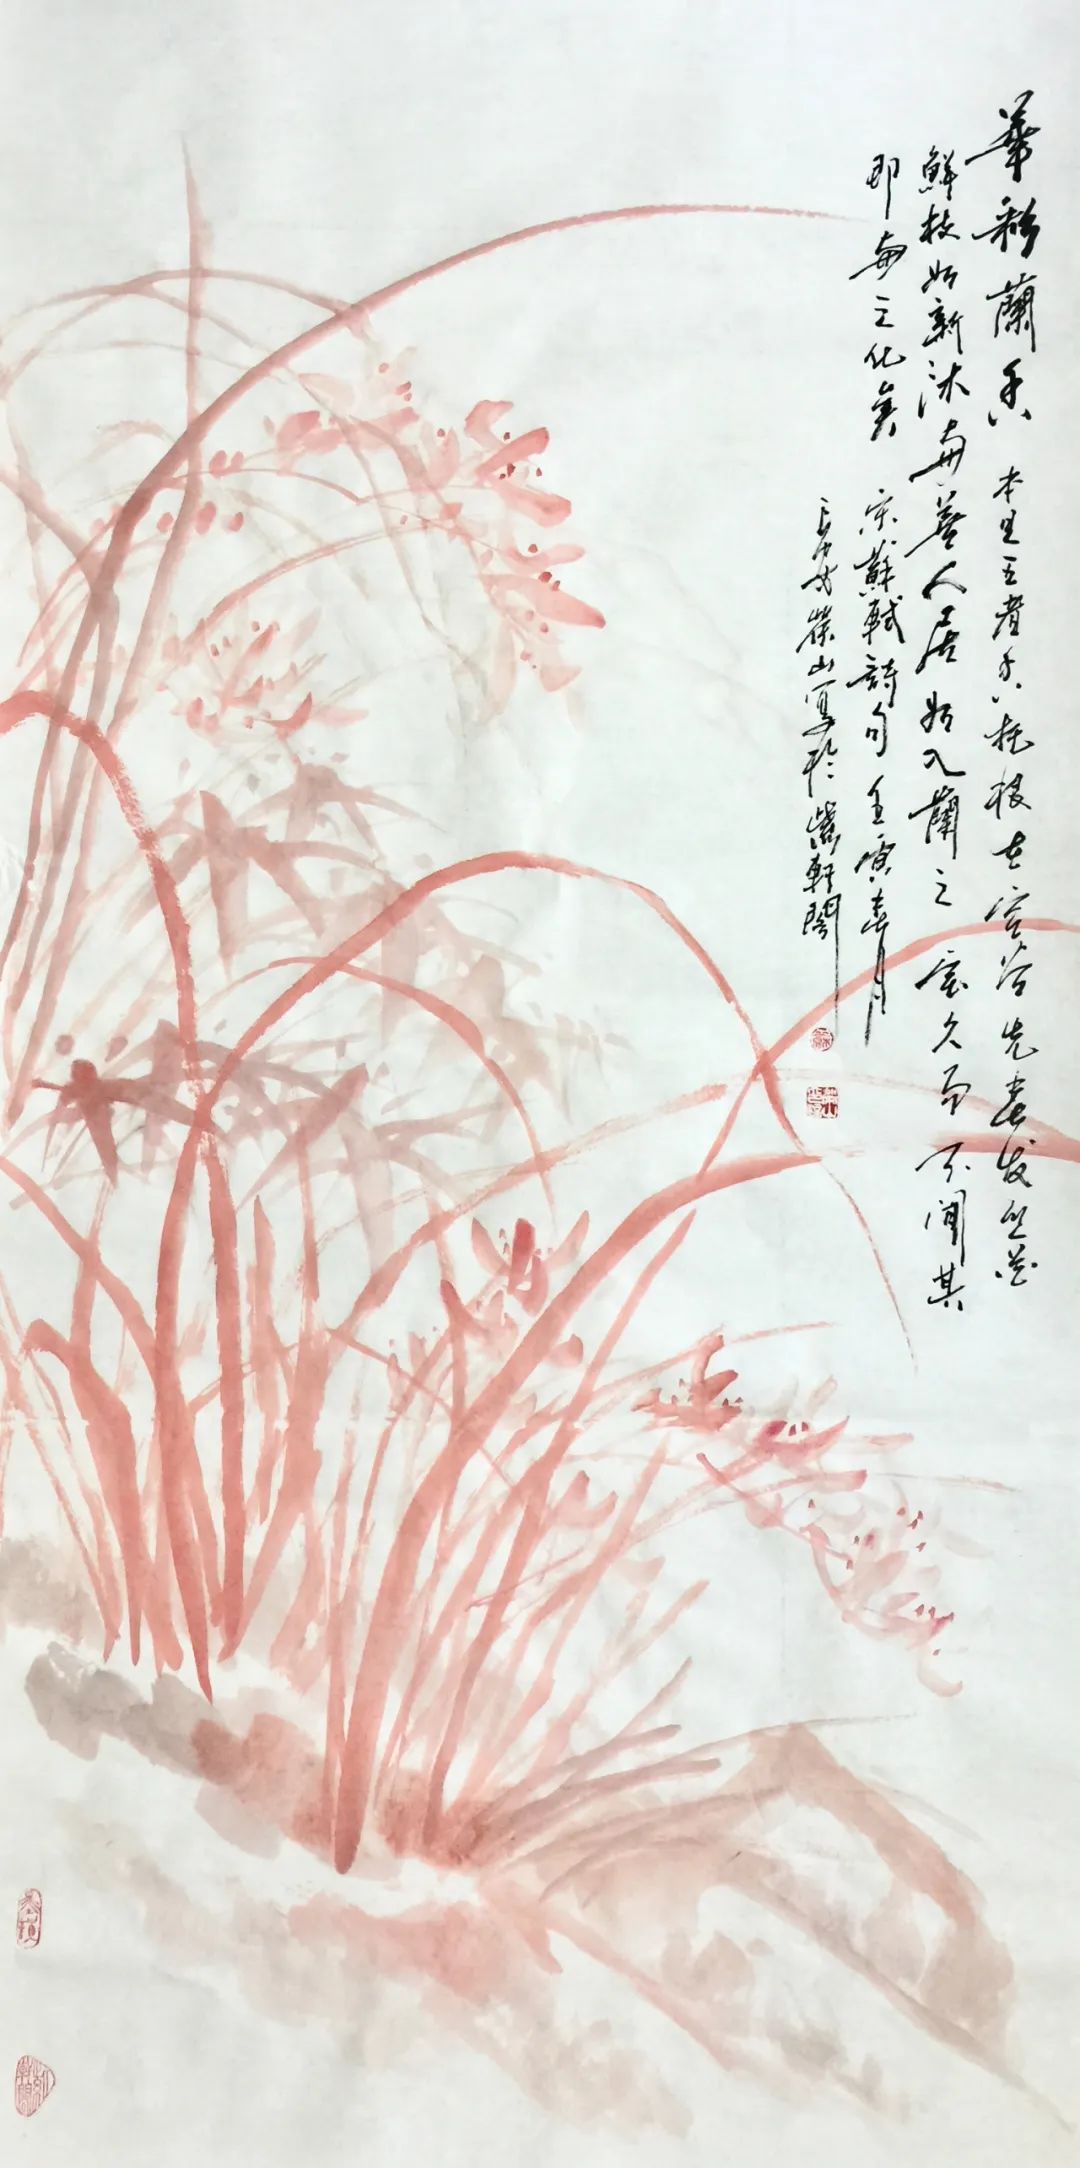 華彩蘭香 本是王者香托根在空谷先春发丛花
鮮枝如新沐與善人居如入蘭之室久而不聞其
即與之化矣 宋蘇軾詩句 壬寅春月
榮山寫於紫軒閣